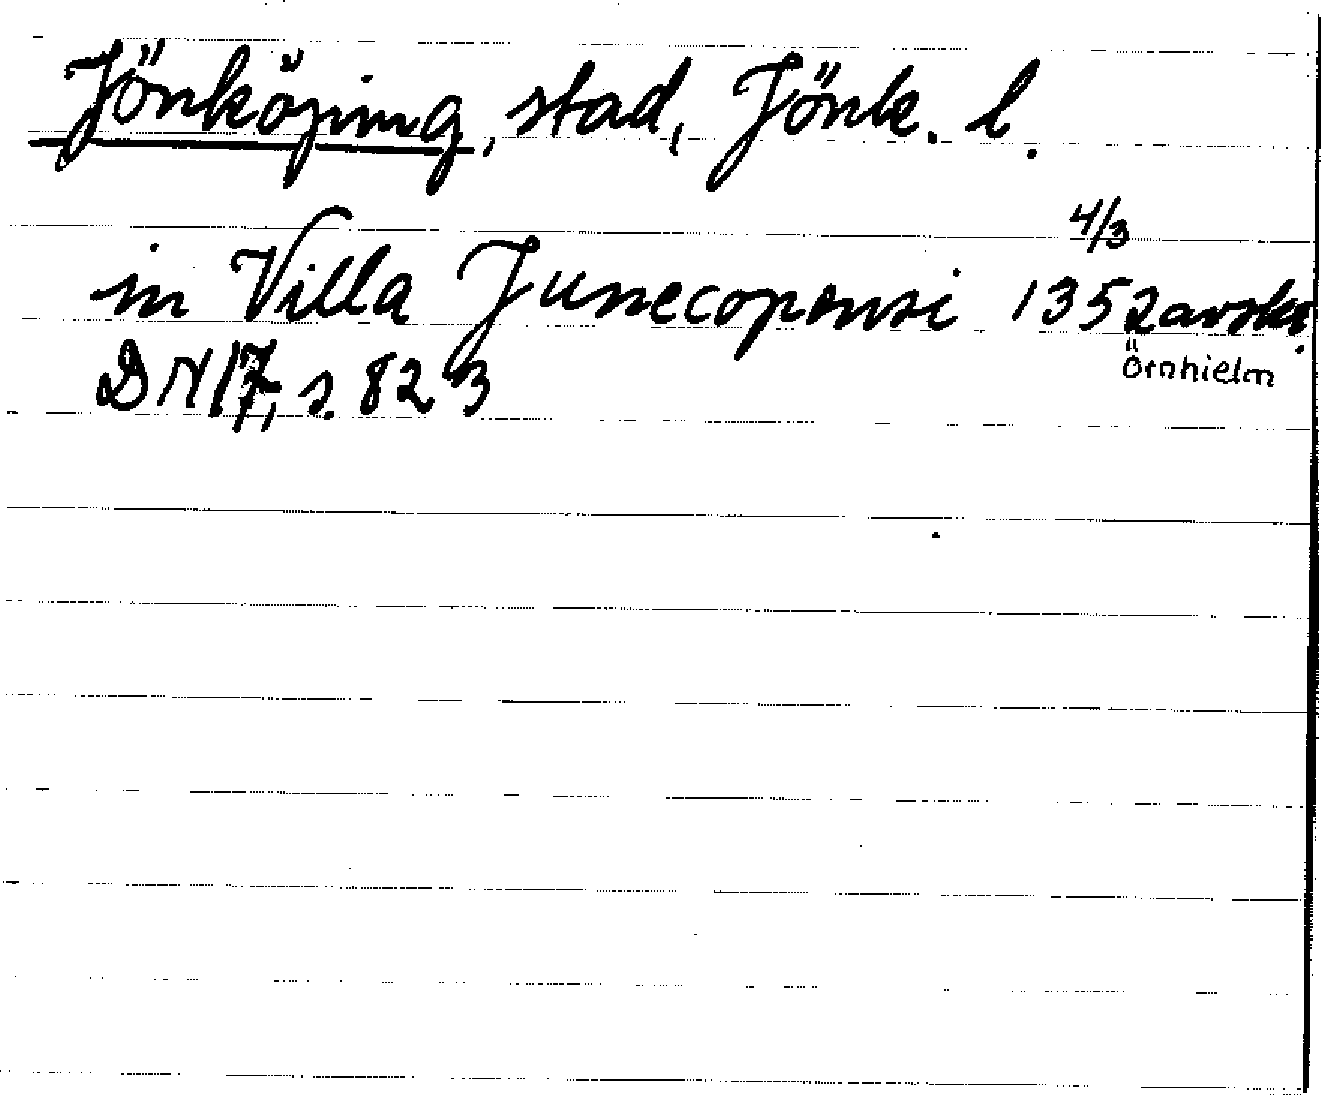 Jönköping, stad, Jönk. l.
4/3
in Villa Junecopensi 1352 avskr.
Örnhielm
DN 17, s. 823